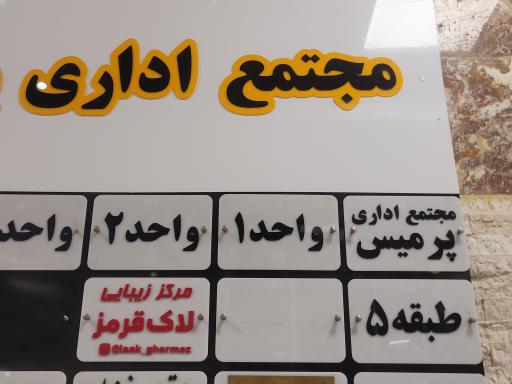 مجتمع اداری
مجتمع اداری
پرمیس
واحد ۱
واحد ۲
واحد
طبقه ۵
مرکز زیبایی
لاک قرمز
@laak_ghermez